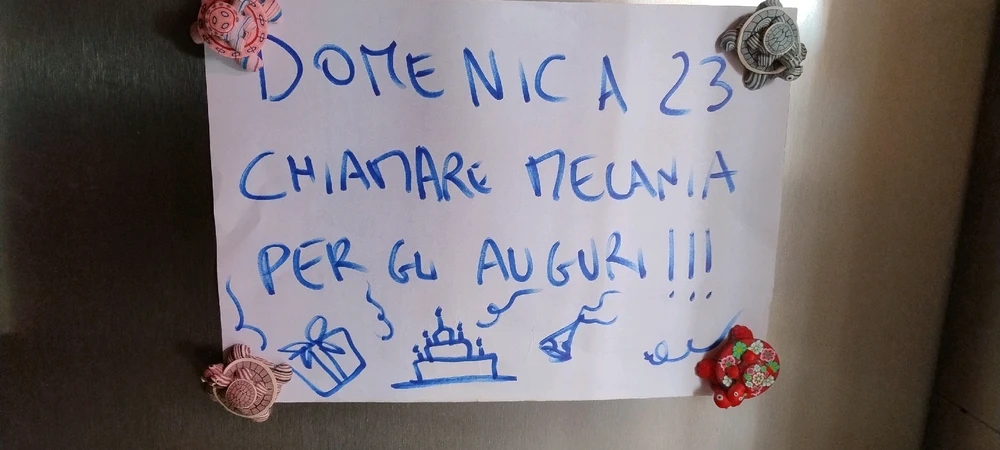 DOMENICA 23
CHIAMARE MELANIA
PER GLI AUGURI!!!